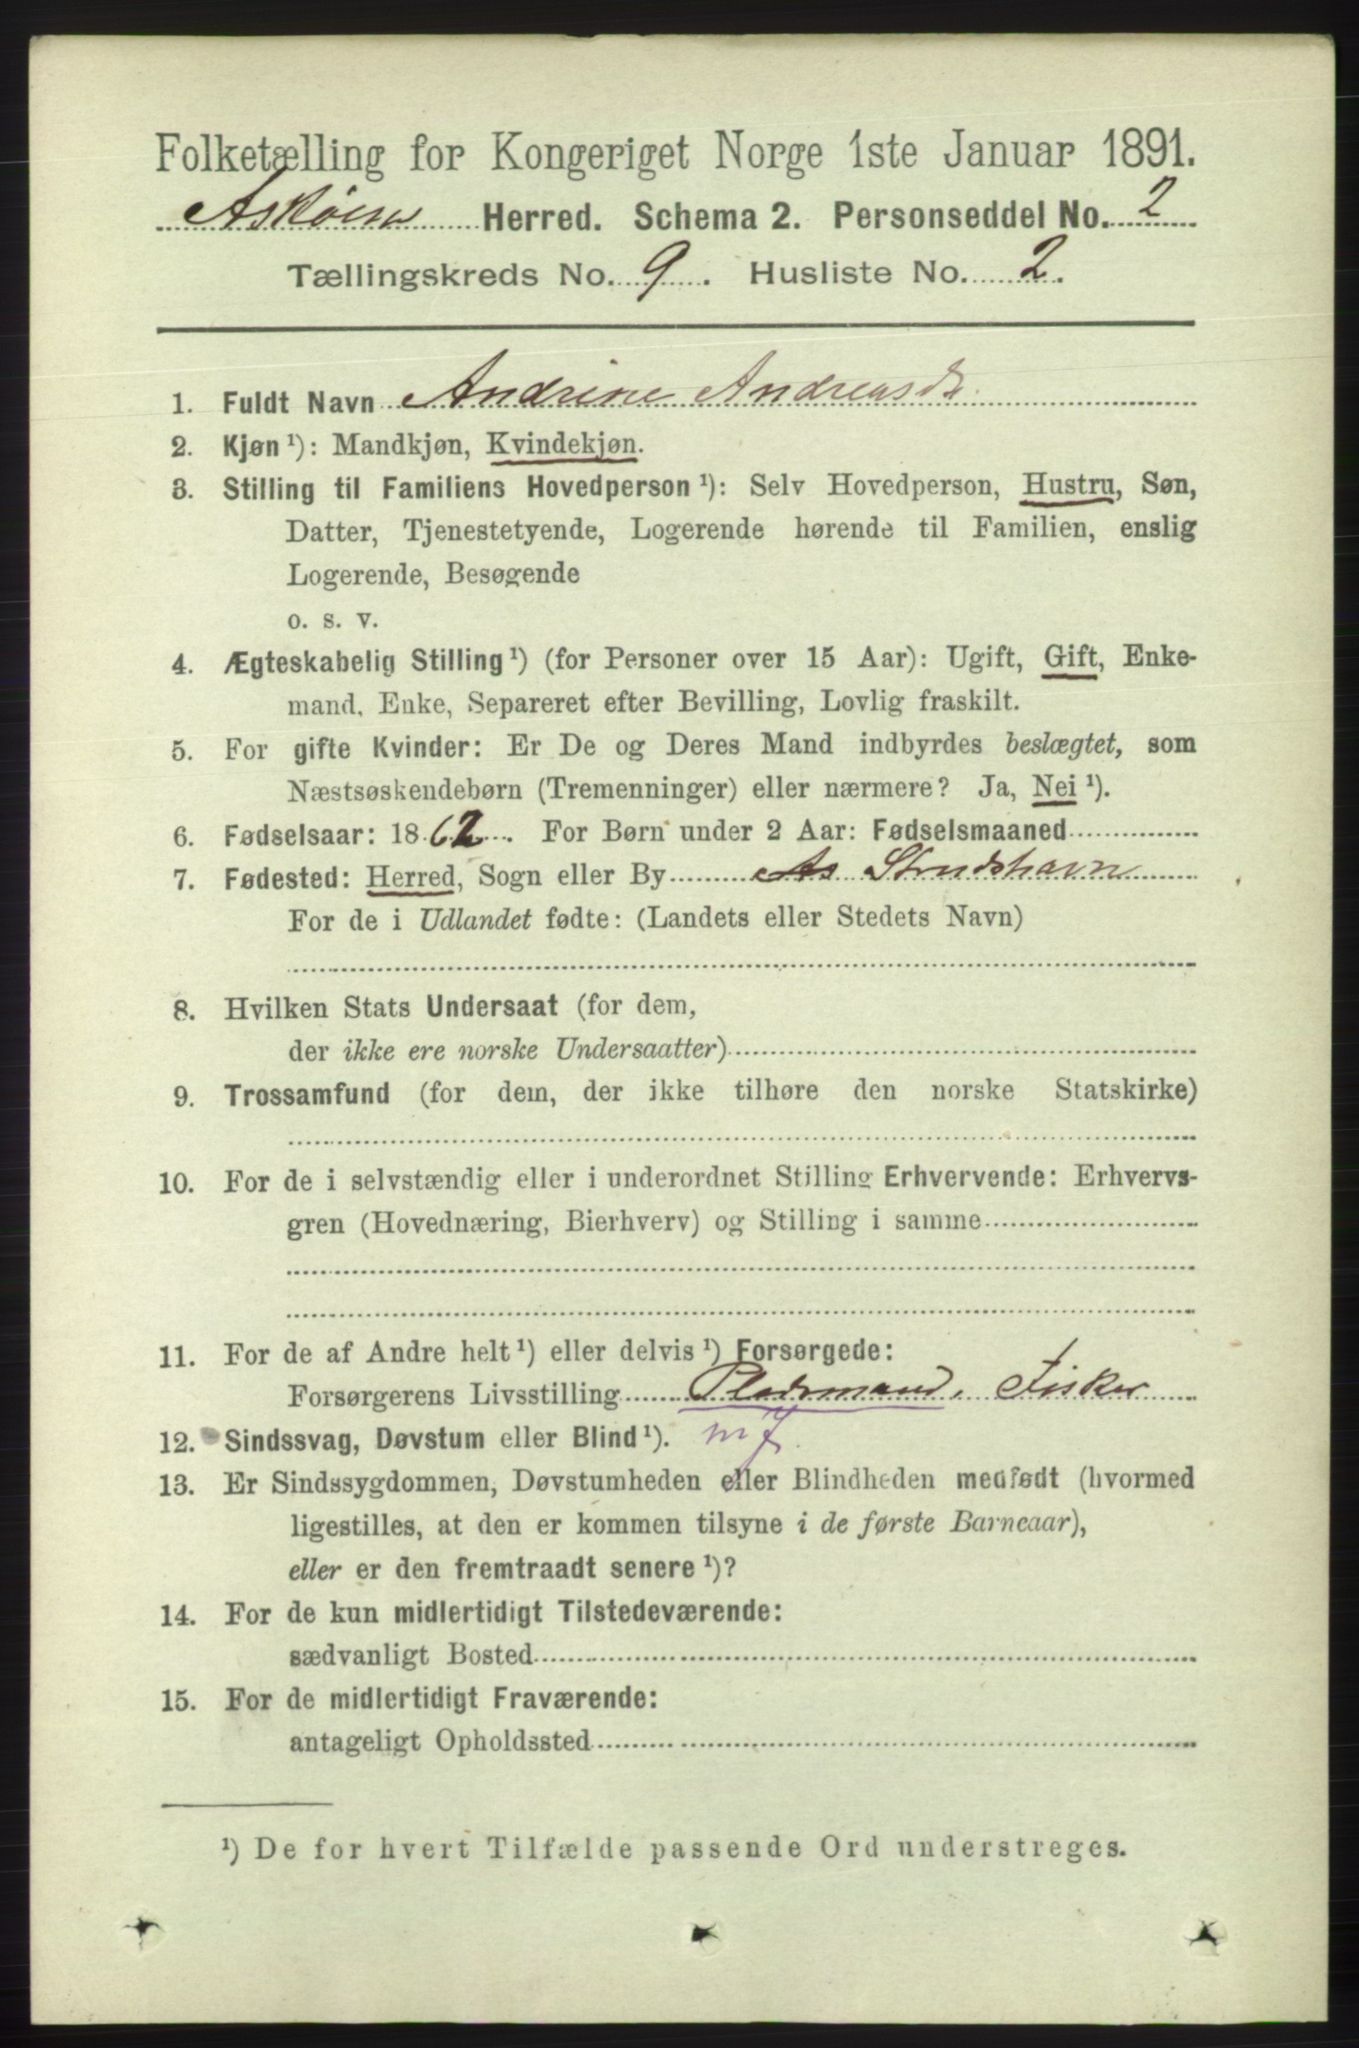 Folketælling for Kongeriget Norge 1ste Januar 1891.
Askøens Herred. Schema 2. Personseddel No. 2
Tællingskreds No. 9. Husliste No. 2.
1. Fuldt Navn Andrine Andreasdr.
2. Kjøn ¹): Mandkjøn, Kvindekjøn.
3. Stilling til Familiens Hovedperson ¹): Selv Hovedperson, Hustru, Søn,
Datter, Tjenestetyende, Logerende hørende til Familien, enslig
Logerende, Besøgende
o. s. v.
4. Ægteskabelig Stilling ¹) (for Personer over 15 Aar): Ugift, Gift, Enke-
mand, Enke, Separeret efter Bevilling, Lovlig fraskilt.
5. For gifte Kvinder: Er De og Deres Mand indbyrdes beslægtet, som
Næstsøskendebørn (Tremenninger) eller nærmere? Ja, Nei ¹).
6. Fødselsaar: 1862. For Børn under 2 Aar: Fødselsmaaned
7. Fødested: Herred, Sogn eller By As Strudshavn
For de i Udlandet fødte: (Landets eller Stedets Navn)
8. Hvilken Stats Undersaat (for dem,
der ikke ere norske Undersaatter)
9. Trossamfund (for dem, der ikke tilhøre den norske Statskirke)
10. For de i selvstændig eller i underordnet Stilling Erhvervende: Erhvervs-
gren (Hovednæring, Bierhverv) og Stilling i samme
11. For de af Andre helt ¹) eller delvis ¹) Forsørgede:
Forsørgerens Livsstilling Pladsmand, Fisker
12. Sindssvag, Døvstum eller Blind ¹). mf
13. Er Sindssygdommen, Døvstumheden eller Blindheden medfødt (hvormed
ligestilles, at den er kommen tilsyne i de første Barneaar),
eller er den fremtraadt senere ¹)?
14. For de kun midlertidigt Tilstedeværende:
sædvanligt Bosted
15. For de midlertidigt Fraværende:
antageligt Opholdssted
¹) De for hvert Tilfælde passende Ord understreges.